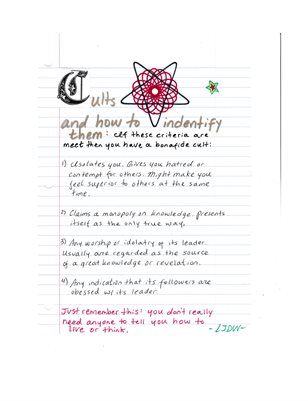 Cults
and how to indentify
them: If these criteria are
meet then you have a bonafide cult:
1) Isolates you. Gives you hatred or
contempt for others. Might make you
feel superior to others at the same
time.
2) Claims a monopoly on knowledge. Presents
itself as the only true way.
3) Any worship or idolatry of its leader.
Usually are regarded as the source
of a great knowledge or revelation.
4) Any indication that its followers are
obessed w/ its leader.
Just remember this: you don't really
need anyone to tell you how to
live or think.
-LJDW-